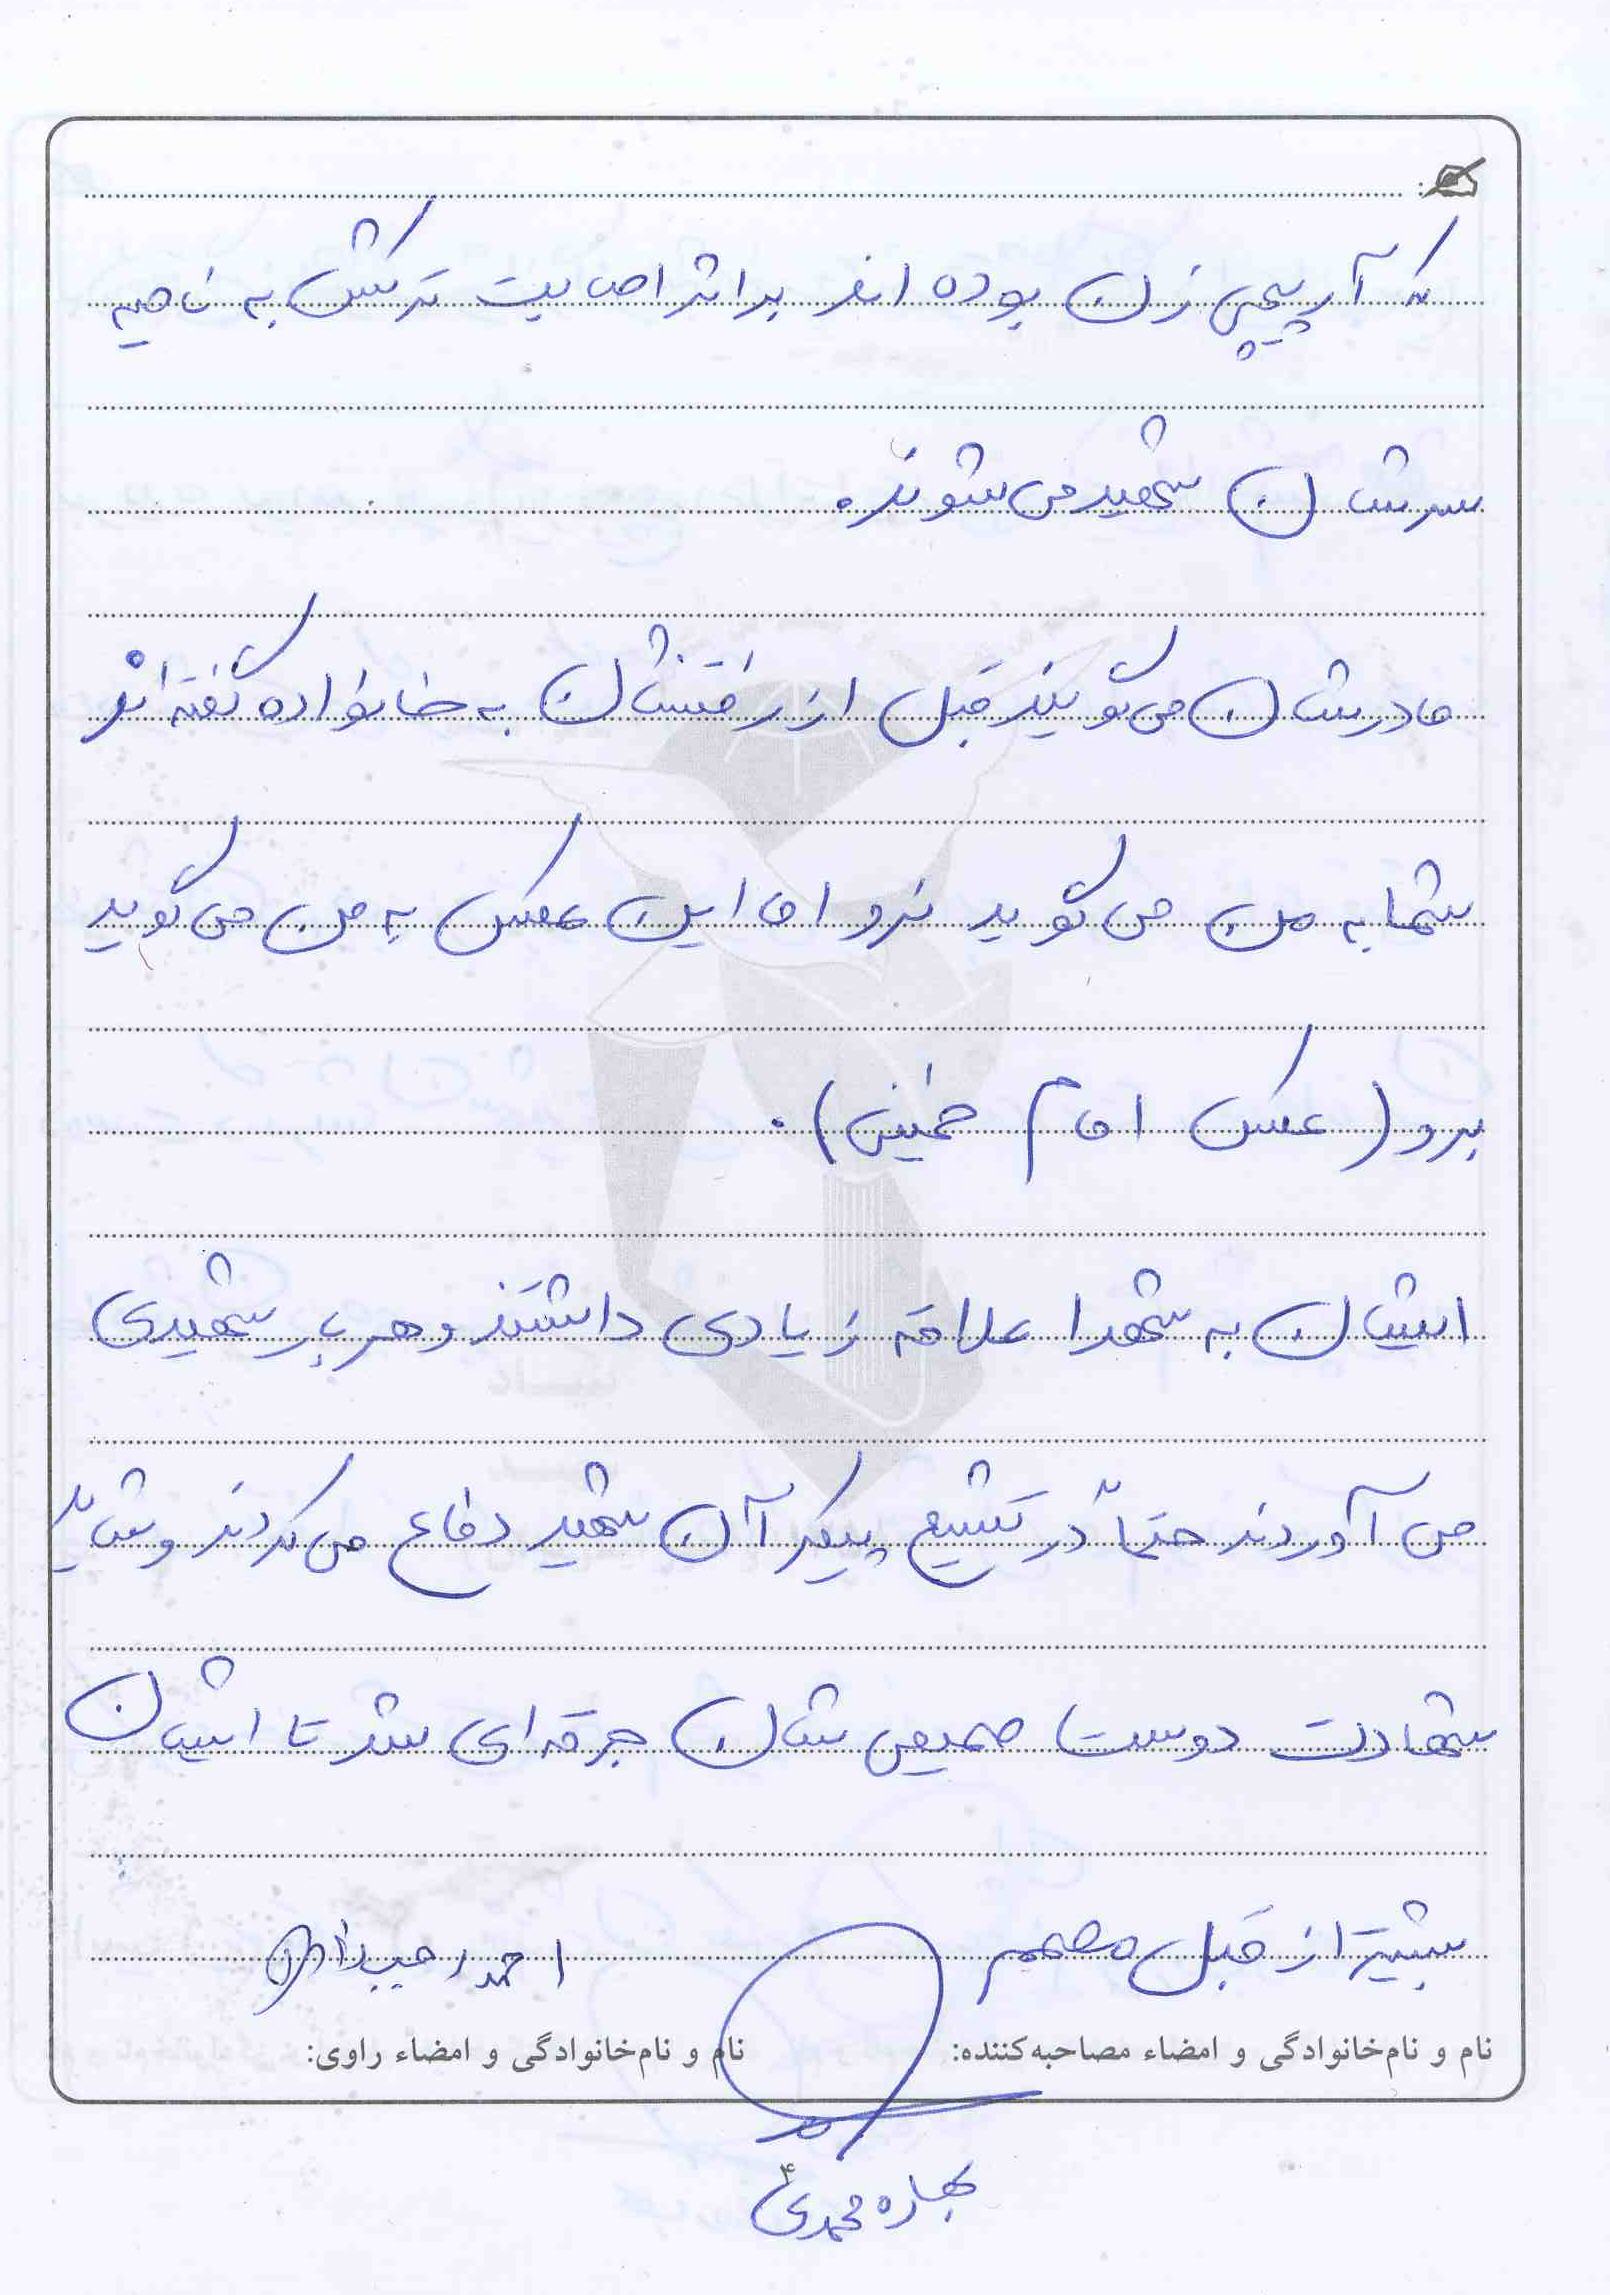 که آرپیجی زن بوده اند براثر اصابت ترکش به ناحیه
سرشان شهید می شوند.
مادرشان می گویند قبل از رفتنشان به خانواده گفته اند
شما به من می گوید نرو اما این عکس به من می گوید
برو (عکس امام خمینی).
ایشان به شهدا علاقه زیادی داشتند و هر بار شهیدی
می آوردند حتماً در تشییع پیکر آن شهید دفاع می کردند و شاید
شهادت دوست صمیمی شان جرقه ای شد تا ایشان
بیشتر از قبل مصمم
احمد
نام و نام‌خانوادگی و امضاء مصاحبه‌کننده:
نام و نام‌خانوادگی و امضاء راوی:
بهاره محمدی
۴